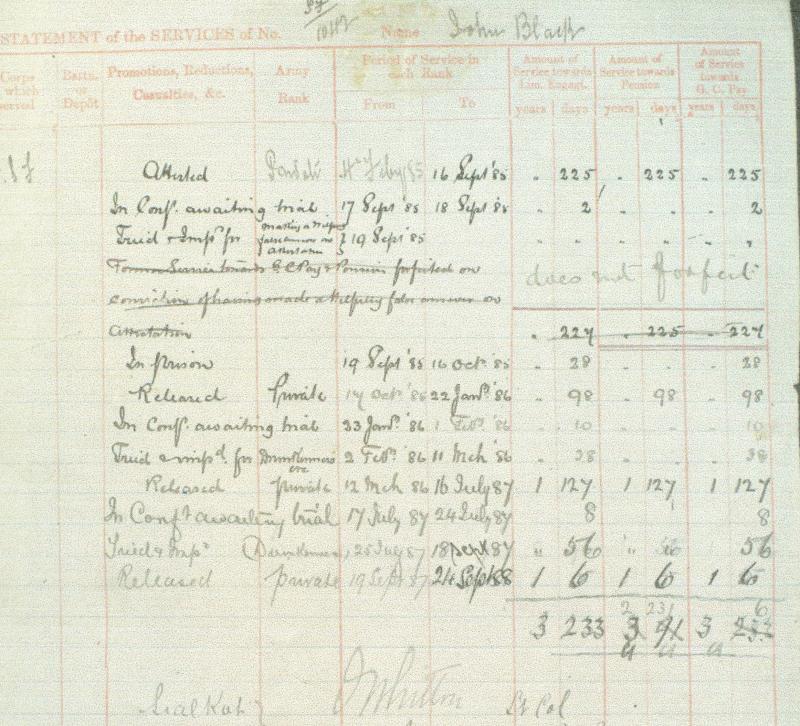 10112
STATEMENT of the SERVICES of No. Name John Black
Corps which served Battn. or Depôt Promotions, Reductions, Casualties, &c. Army Rank Period of Service in each Rank From To Amount of Service towards Lim. Engagt. years days Amount of Service towards Pension years days Amount of Service towards G. C. Pay years days
Attested 4th Feby 85 16 Sept '85 " 225 " 225 " 225
In Conft. awaiting trial 17 Sept '85 18 Sept '85 " 2 " " " 2
Tried & Impd for making a wilfully false answer on attestation } 19 Sept '85 " " " " " "
Former Service towards G C Pay & Pension forfeited on does not forfeit
conviction of having made a wilfully false answer on
attestation " 227 " 225 " 227
In prison 19 Sept '85 16 Oct. '85 " 28 " " " 28
Released Private 17 Oct '85 22 Jany. '86 " 98 " 98 " 98
In Conft. awaiting trial 23 Jany. '86 1 Feby. '86 " 10 " " " 10
Tried & impd. for Drunkenness etc 2 Feby. '86 11 Mch '86 " 38 " " " 38
Released private 12 Mch 86 16 July 87 1 127 1 127 1 127
In Conft awaiting trial 17 July 87 24 July 87 8 8
Tried & Impd Drunkenness 25 July 87 18 Sept 87 " 56 " 56
Released private 19 Sept 87 24 Sept 88 1 6 1 6 1 6
2 231 6
3 233 3 91 3 233
Sialkot } Lt Col